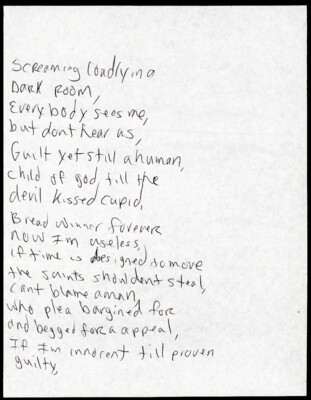 Screaming loudly in a
Dark Room,
Every body sees me,
but dont hear us,
Guilt yet still a human,
child of god, till the
devil kissed cupid,
Bread winner forever
now Im useless,
if time is designed to move
the saints shouldent steal,
cant blame a man,
who plea bargined for
and begged for a appeal,
If Im innorent till proven
guilty,